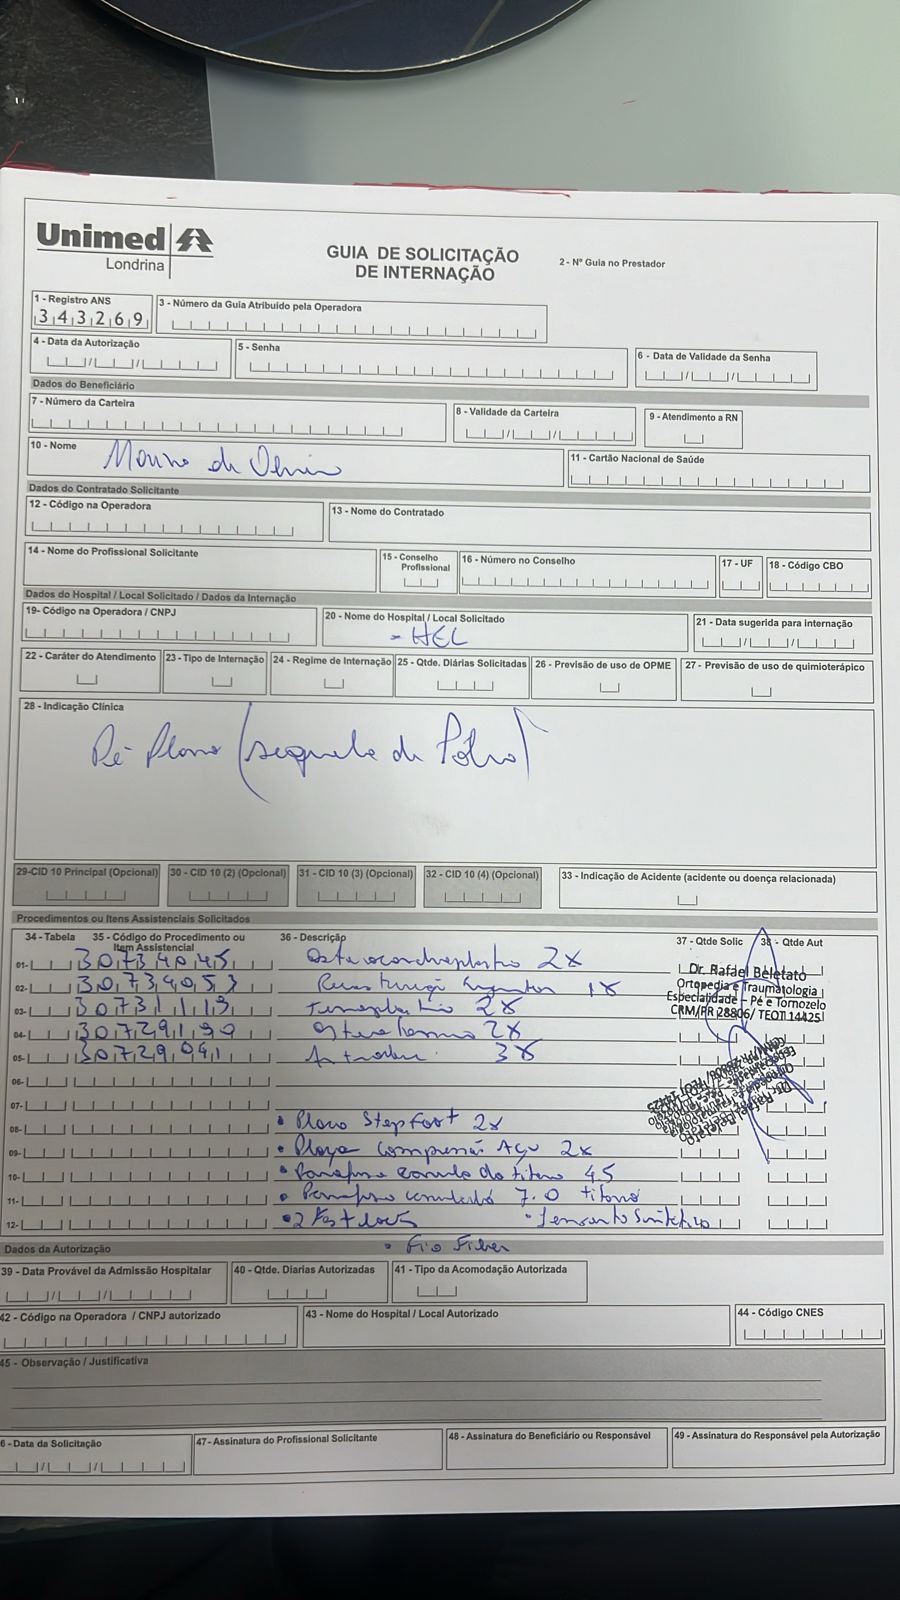 Unimed
Londrina
GUIA DE SOLICITAÇÃO
DE INTERNAÇÃO
2 - Nº Guia no Prestador
1 - Registro ANS
343269
3 - Número da Guia Atribuido pela Operadora
4 - Data da Autorização
5 - Senha
6 - Data de Validade da Senha
Dados do Beneficiário
7 - Número da Carteira
8 - Validade da Carteira
9 - Atendimento a RN
10 - Nome
de
11 - Cartão Nacional de Saúde
Dados do Contratado Solicitante
12 - Código na Operadora
13 - Nome do Contratado
14 - Nome do Profissional Solicitante
15 - Conselho Profissional
16 - Número no Conselho
17 - UF
18 - Código CBO
Dados do Hospital / Local Solicitado / Dados da Internação
19- Código na Operadora / CNPJ
20 - Nome do Hospital / Local Solicitado
- HEL
21 - Data sugerida para internação
22 - Caráter do Atendimento
23 - Tipo de Internação
24 - Regime de Internação
25 - Qtde. Diárias Solicitadas
26 - Previsão de uso de OPME
27 - Previsão de uso de quimioterápico
28 - Indicação Clínica
Pé Plano (sequela de Pólio)
29-CID 10 Principal (Opcional)
30 - CID 10 (2) (Opcional)
31 - CID 10 (3) (Opcional)
32 - CID 10 (4) (Opcional)
33 - Indicação de Acidente (acidente ou doença relacionada)
Procedimentos ou Itens Assistenciais Solicitados
34 - Tabela
35 - Código do Procedimento ou Item Assistencial
36 - Descrição
37 - Qtde Solic
38 - Qtde Aut
01- 30734045 2x
02- 30734053 1x
03- 30731119 2x
04- 30729190 2x
05- 30729041 3x
06-
07-
08- • Placa Stepfoot 2x
09- • Placa compressão Aço 2x
10- • Parafuso canulado titânio 4.5
11- • Parafuso canulado 7.0 titânio
12- • 2 Fastlock • Ten Sintético
• Fio Fiber
Dr. Rafael Beletato
Ortopedia e Traumatologia
Especialidade - Pé e Tornozelo
CRM/PR 28806/ TEOT 14425
Dados da Autorização
39 - Data Provável da Admissão Hospitalar
40 - Qtde. Diarias Autorizadas
41 - Tipo da Acomodação Autorizada
42 - Código na Operadora / CNPJ autorizado
43 - Nome do Hospital / Local Autorizado
44 - Código CNES
45 - Observação / Justificativa
6 - Data da Solicitação
47 - Assinatura do Profissional Solicitante
48 - Assinatura do Beneficiário ou Responsável
49 - Assinatura do Responsável pela Autorização